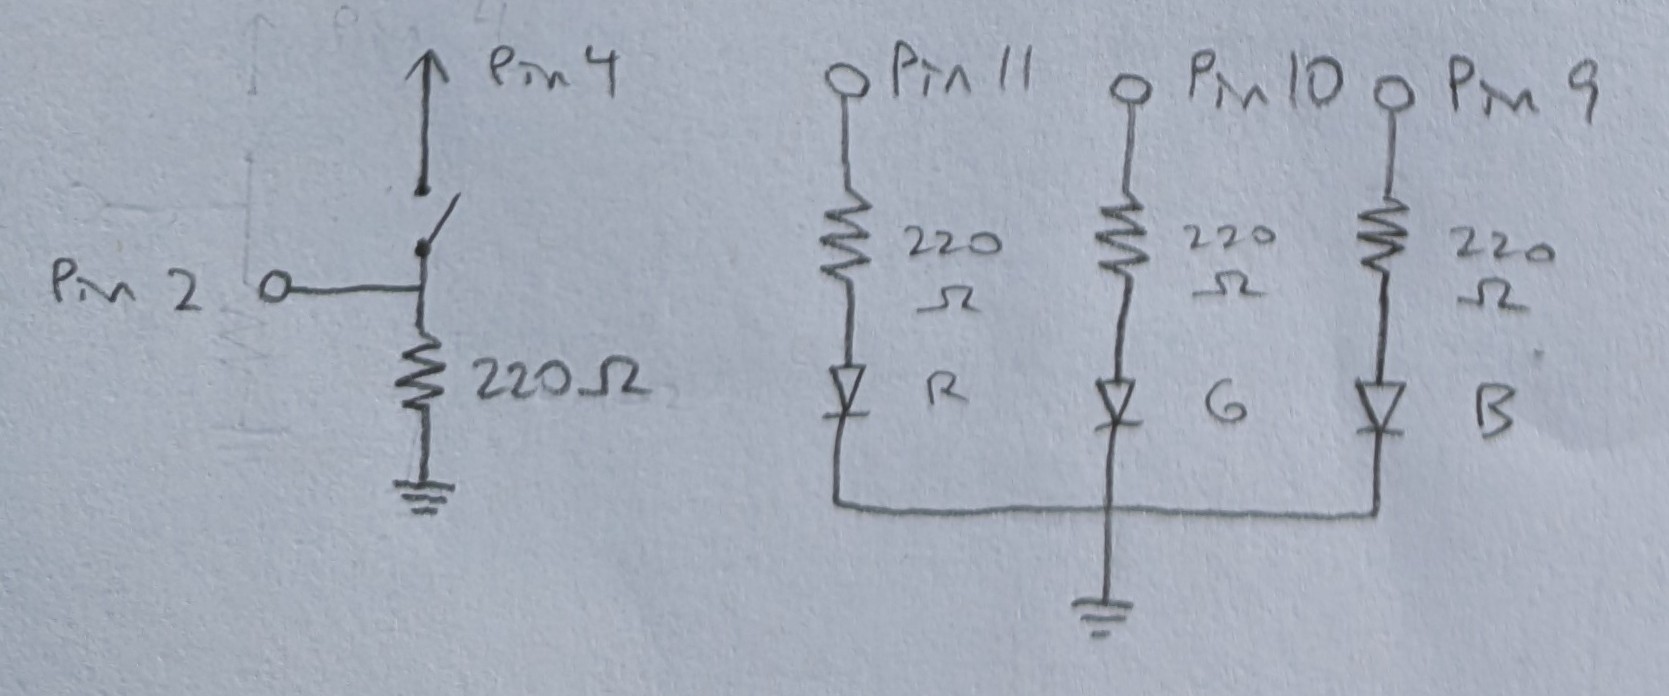 Pin 4
Pin 2
220Ω
Pin 11
220
Ω
R
Pin 10
220
Ω
G
Pin 9
220
Ω
B